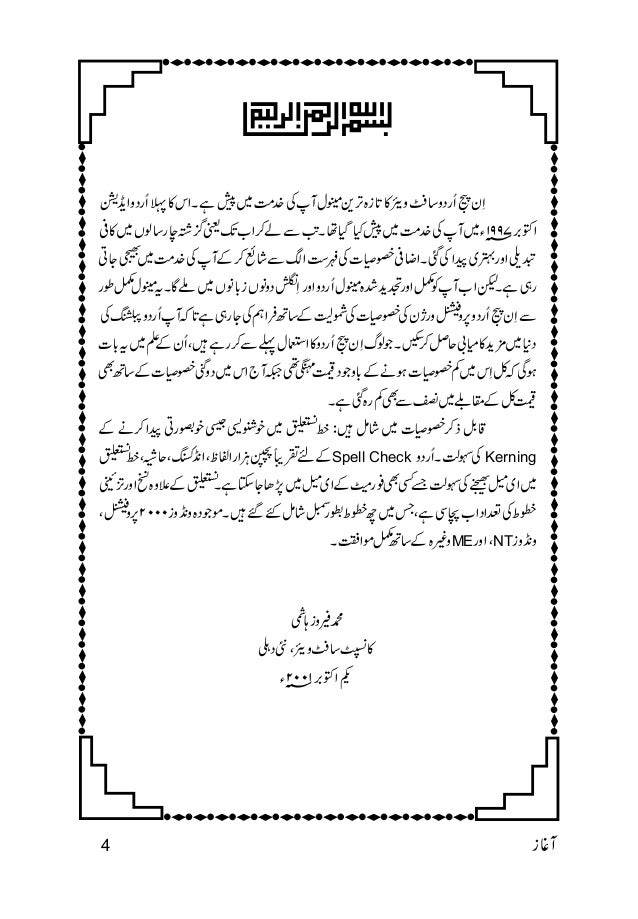 بسم اللہ الرحمن الرحیم
اِن پیج اُردو سافٹ ویئر کا تازہ ترین مینول آپ کی خدمت میں پیش ہے۔ اس کا پہلا اُردو ایڈیشن
اکتوبر ۱۹۹۷ء میں آپ کی خدمت میں پیش کیا گیا تھا۔ تب سے لے کر اب تک یعنی گزشتہ چار سالوں میں کافی
تبدیلی اور بہتری پیدا کی گئی۔ اضافی خصوصیات کی فہرست الگ سے شائع کر کے آپ کی خدمت میں بھیجی جاتی
رہی ہے۔ لیکن اب آپ کو مکمل اور تجدید شدہ مینول اُردو اور اِنگلش دونوں زبانوں میں ملے گا۔ یہ مینول مکمل طور
سے اِن پیج اُردو پروفیشنل ورژن کی خصوصیات کی شمولیت کے ساتھ فراہم کی جا رہی ہے تا کہ آپ اُردو پبلشنگ کی
دنیا میں مزید کامیابی حاصل کر سکیں۔ جو لوگ اِن پیج اُردو کا استعمال پہلے سے کر رہے ہیں، اُن کے علم میں یہ بات
ہو گی کہ کل اِس میں کم خصوصیات ہونے کے باوجود قیمت مہنگی تھی جبکہ آج اس میں دو گنی خصوصیات کے ساتھ بھی
قیمت کل کے مقابلے میں نصف سے بھی کم رہ گئی ہے۔
قابل ذکر خصوصیات میں شامل ہیں: خط نستعلیق میں خوشنویسی جیسی خوبصورتی پیدا کرنے کے
Kerning کی سہولت۔ اُردو Spell Check کے لئے تقریباً پچپن ہزار الفاظ، انڈکسنگ، حاشیہ، خط نستعلیق
میں ای میل بھیجنے کی سہولت جسے کسی بھی فورمیٹ کے ای میل میں پڑھا جا سکتا ہے۔ نستعلیق کے علاوہ نسخ اور تزئینی
خطوط کی تعداد اب پچاسی ہے، جس میں چھ خطوط بطور سمبل شامل کئے گئے ہیں۔ موجودہ ونڈوز ۲۰۰۰ پروفیشنل،
ونڈوز NT، اور ME وغیرہ کے ساتھ مکمل موافقت۔
محمد فیروز ہاشمی
کانسپٹ سافٹ ویئر، نئی دہلی
یکم اکتوبر ۲۰۰۱ء
آغاز 4